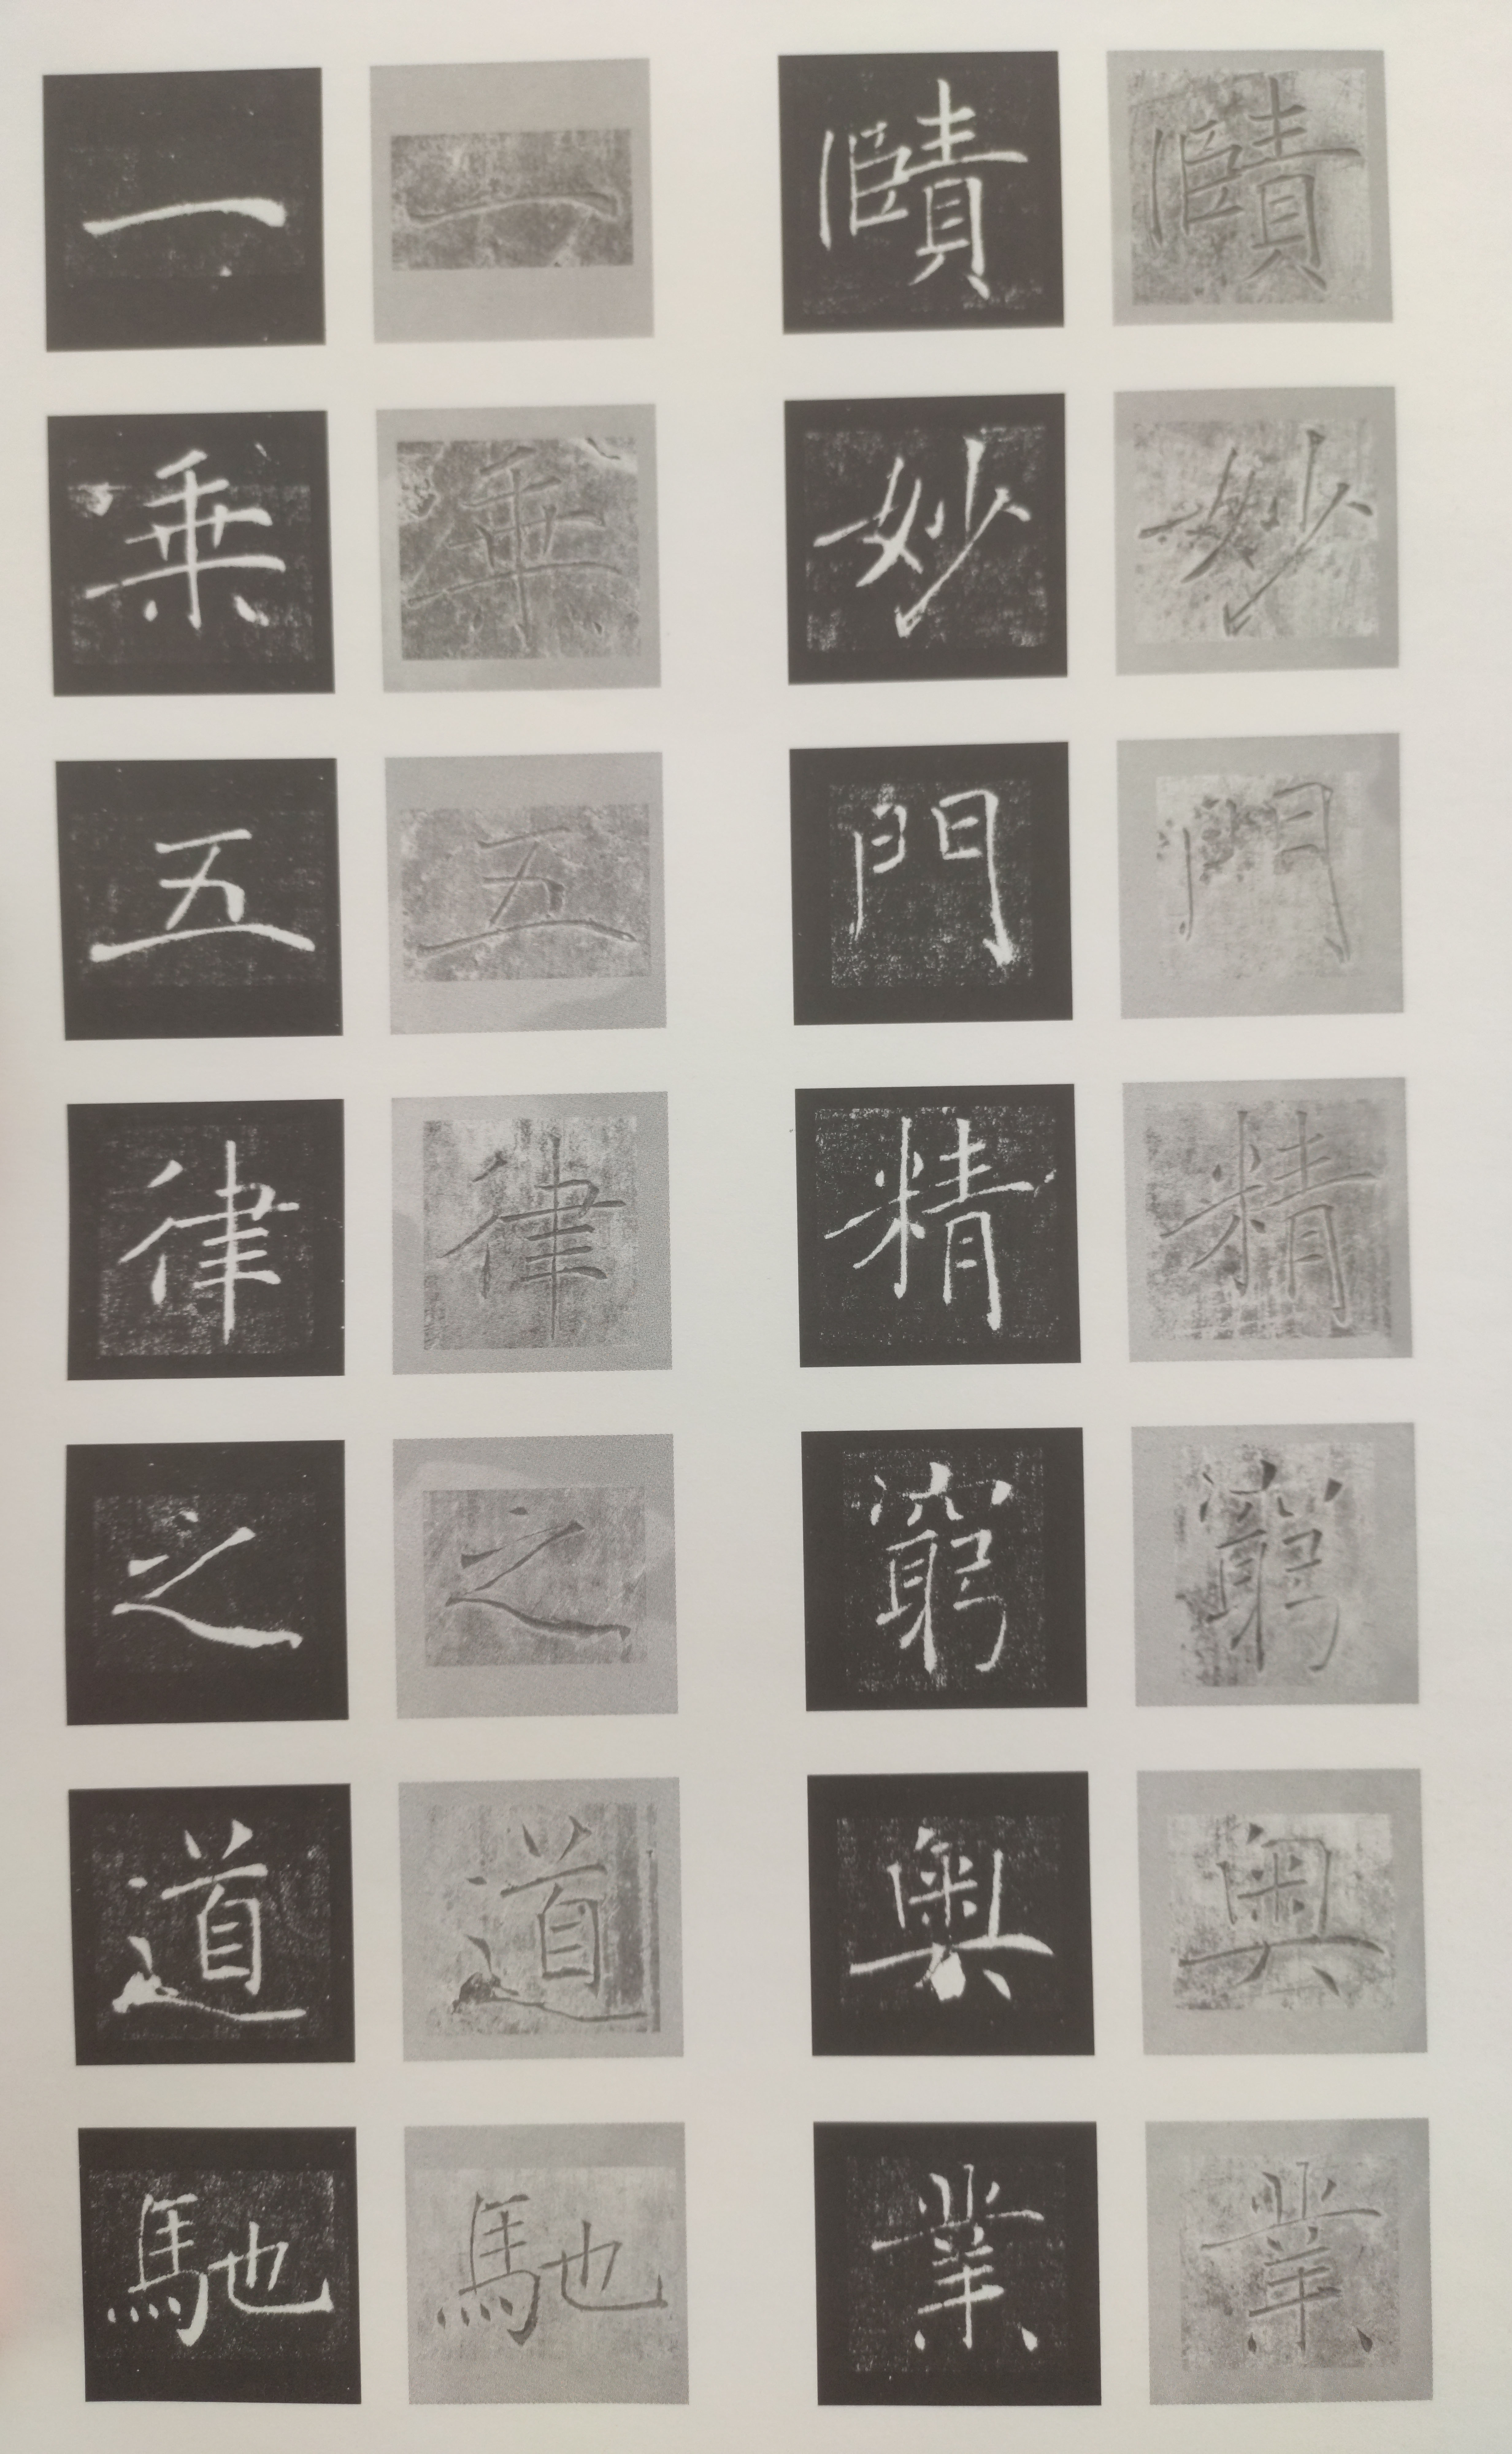 賾妙門精窮奧業
賾妙門精窮奧業
一乗五律之道馳
一乗五律之道馳